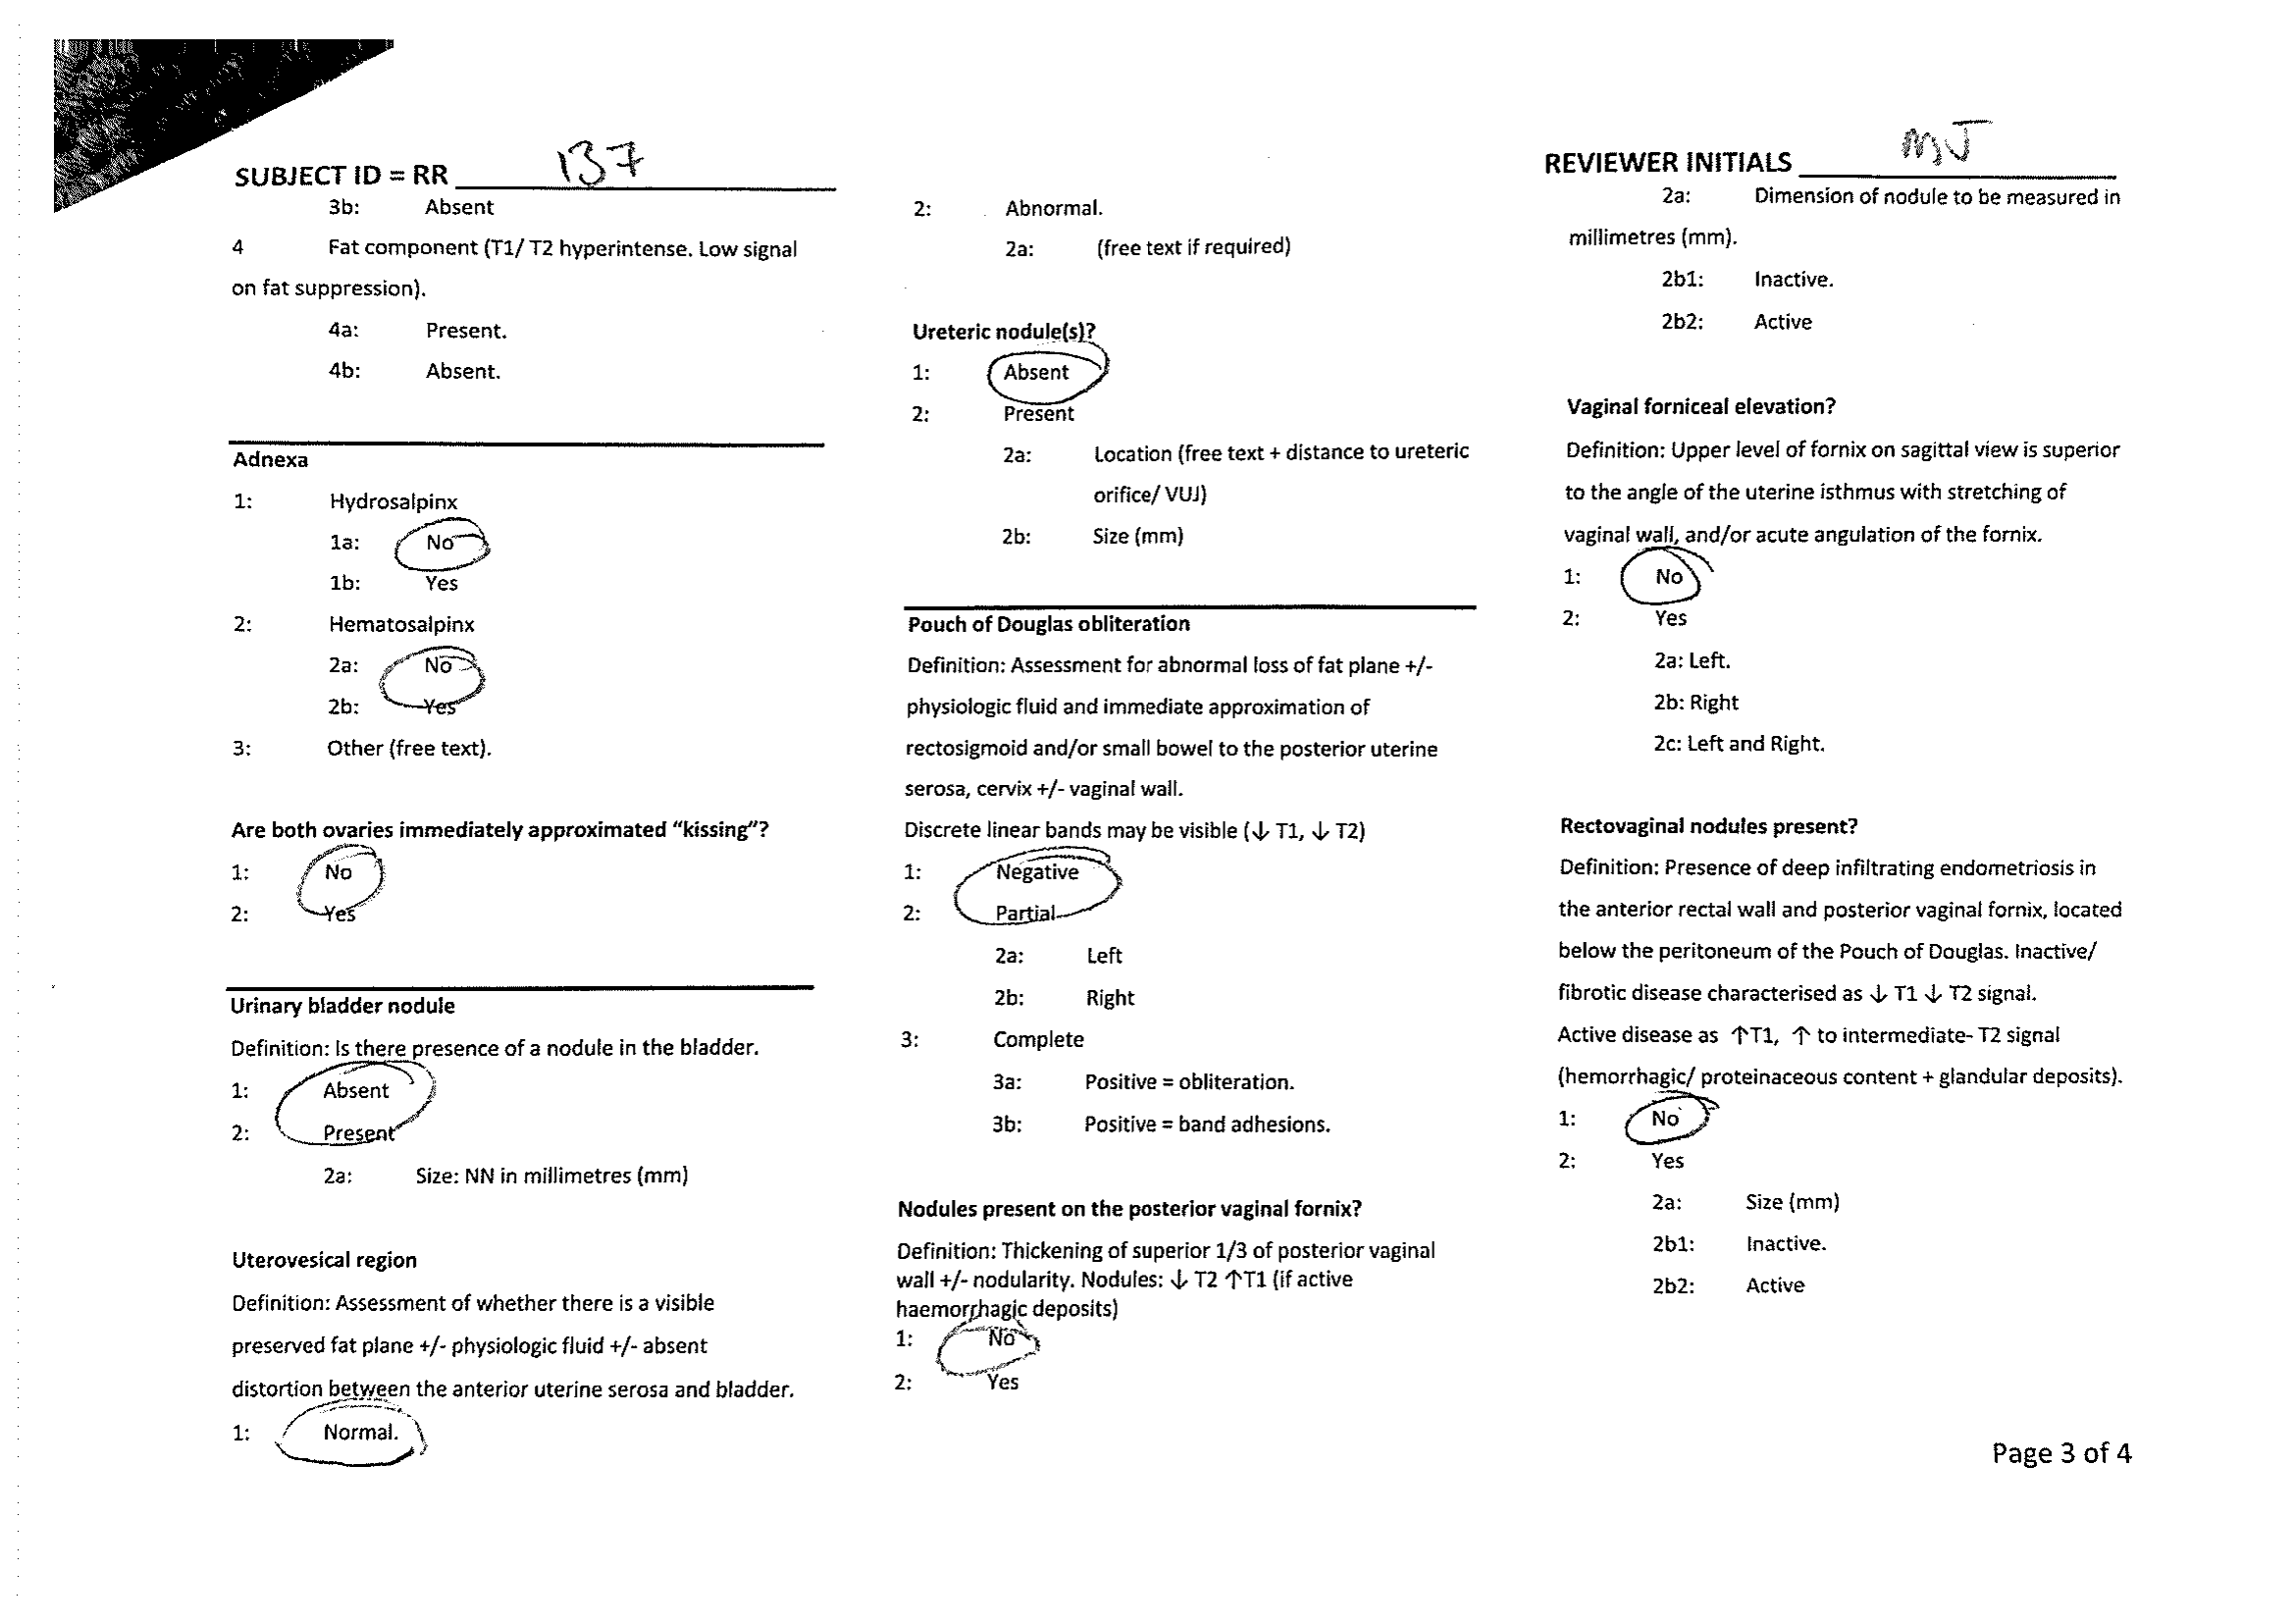 SUBJECT ID = RR 137
3b: Absent
4 Fat component (T1/ T2 hyperintense. Low signal
on fat suppression).
4a: Present.
4b: Absent.
Adnexa
1: Hydrosalpinx
1a: No
1b: Yes
2: Hematosalpinx
2a: No
2b: Yes
3: Other (free text).
Are both ovaries immediately approximated “kissing”?
1: No
2: Yes
Urinary bladder nodule
Definition: Is there presence of a nodule in the bladder.
1: Absent
2: Present
2a: Size: NN in millimetres (mm)
Uterovesical region
Definition: Assessment of whether there is a visible
preserved fat plane +/- physiologic fluid +/- absent
distortion between the anterior uterine serosa and bladder.
1: Normal.
2: Abnormal.
2a: (free text if required)
Ureteric nodule(s)?
1: Absent
2: Present
2a: Location (free text + distance to ureteric
orifice/ VUJ)
2b: Size (mm)
Pouch of Douglas obliteration
Definition: Assessment for abnormal loss of fat plane +/-
physiologic fluid and immediate approximation of
rectosigmoid and/or small bowel to the posterior uterine
serosa, cervix +/- vaginal wall.
Discrete linear bands may be visible (↓ T1, ↓ T2)
1: Negative
2: Partial
2a: Left
2b: Right
3: Complete
3a: Positive = obliteration.
3b: Positive = band adhesions.
Nodules present on the posterior vaginal fornix?
Definition: Thickening of superior 1/3 of posterior vaginal
wall +/- nodularity. Nodules: ↓ T2 ↑T1 (if active
haemorrhagic deposits)
1: No
2: Yes
REVIEWER INITIALS MJ
2a: Dimension of nodule to be measured in
millimetres (mm).
2b1: Inactive.
2b2: Active
Vaginal forniceal elevation?
Definition: Upper level of fornix on sagittal view is superior
to the angle of the uterine isthmus with stretching of
vaginal wall, and/or acute angulation of the fornix.
1: No
2: Yes
2a: Left.
2b: Right
2c: Left and Right.
Rectovaginal nodules present?
Definition: Presence of deep infiltrating endometriosis in
the anterior rectal wall and posterior vaginal fornix, located
below the peritoneum of the Pouch of Douglas. Inactive/
fibrotic disease characterised as ↓ T1 ↓ T2 signal.
Active disease as ↑T1, ↑ to intermediate- T2 signal
(hemorrhagic/ proteinaceous content + glandular deposits).
1: No
2: Yes
2a: Size (mm)
2b1: Inactive.
2b2: Active
Page 3 of 4